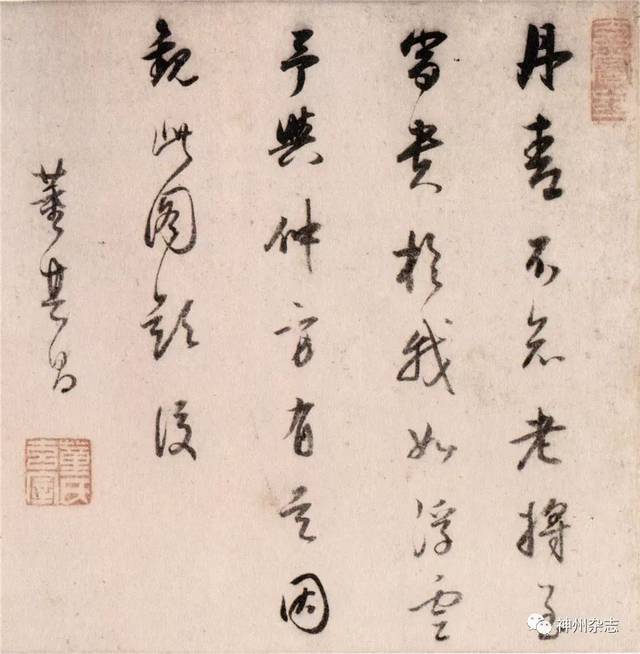 丹青不知老將至
富貴於我如浮雲
予與仲方有之因
觀此圖題後
董其昌
玄賞齋
董氏玄宰
神州杂志